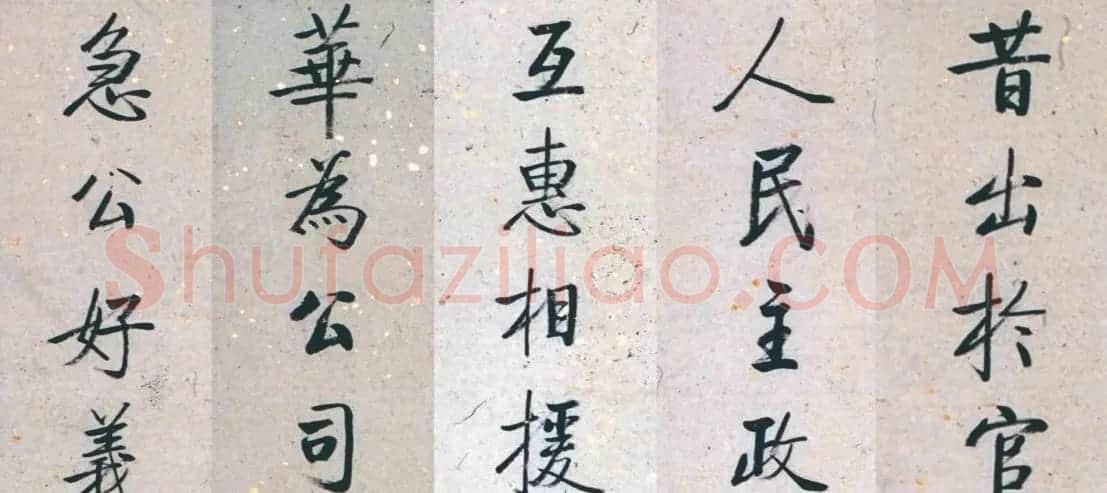 昔出於官
人民主政
互惠相援
華為公司
急公好義
Shufaziliao.COM